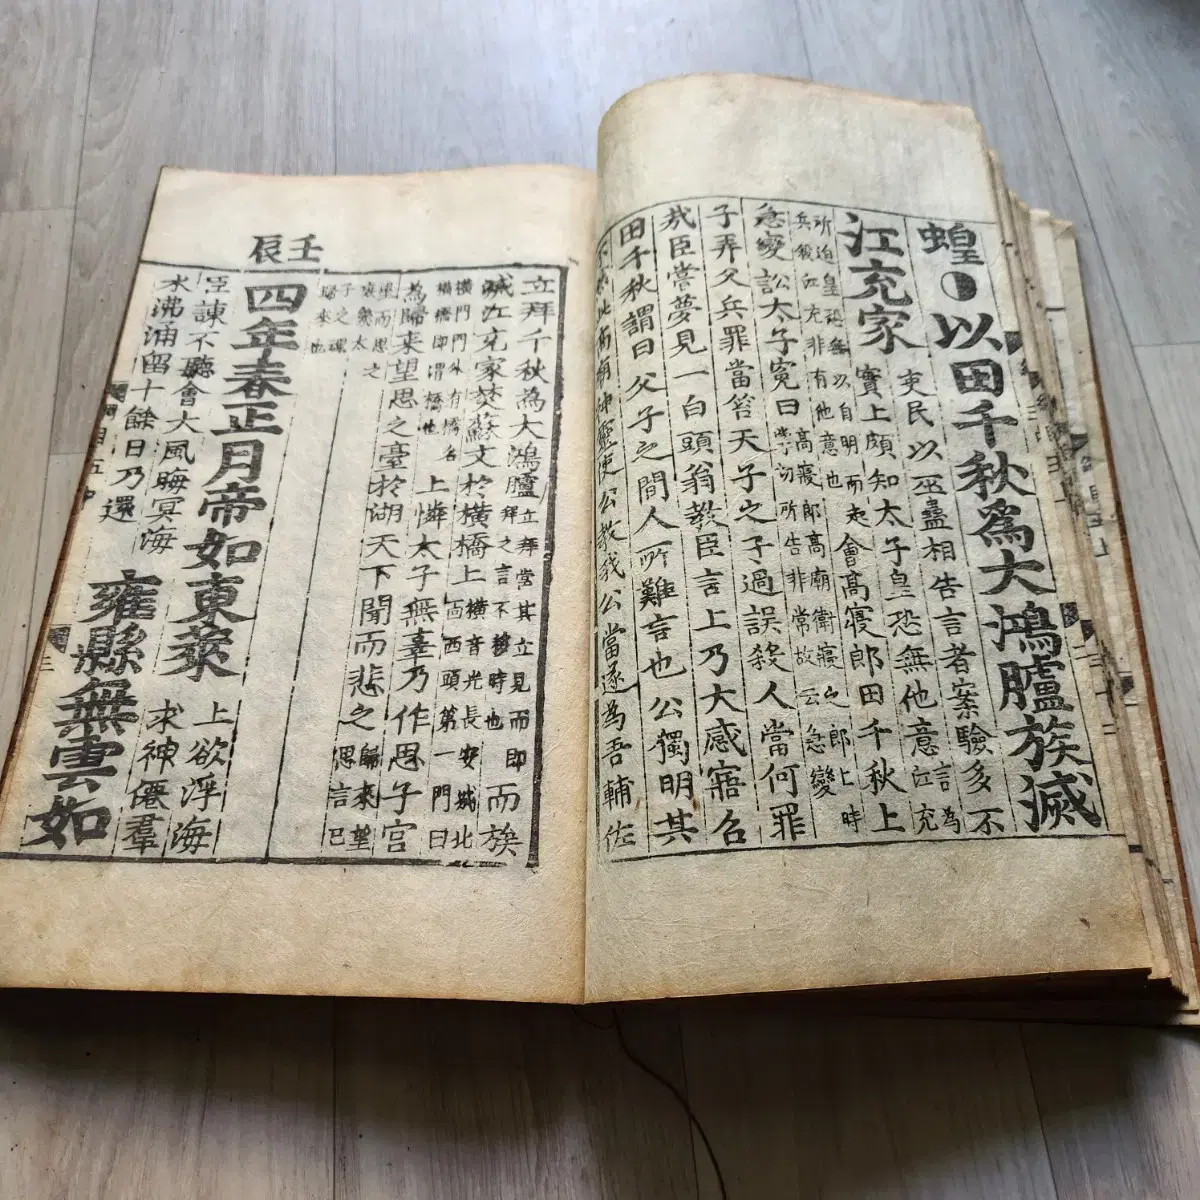 蝗◗以田千秋爲大鴻臚族滅
江充家
吏民以巫蠱相告言者案驗多不
實上頗知太子皇恐無他意
言為
江充
所迫皇恐無以自明而起
兵殺江充非有他意也
會高寢郎田千秋上
急變訟太子寃曰
高寢郎高廟衛寢之郎上時
掌切所告非常故云急變
子弄父兵罪當笞天子之子過誤殺人當何罪
哉臣嘗夢見一白頭翁教臣言上乃大感寤召
田千秋謂曰父子之間人所難言也公獨明其
不然此高廟神靈使公教我公當遂為吾輔佐
立拜千秋為大鴻臚
立拜當其立見而即
拜之言不移時也
而族
滅江充家焚蘇文於橫橋上
橫音光長安城北
面西頭第一門曰
橫門門外有橋名
橫橋即渭橋也
上憐太子無辜乃作思子宮
為歸來望思之臺於湖天下聞而悲之
歸來望
思言已
望而思之
庶幾太
子之魂
歸來也
壬辰
四年春正月帝如東萊
上欲浮海
求神僊羣
臣諫不聽會大風晦冥海
水沸涌留十餘日乃還
雍縣無雲如